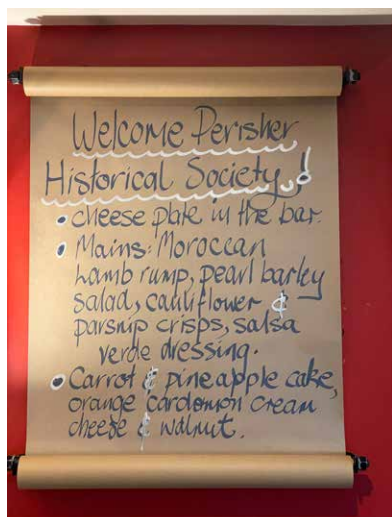 Welcome Perisher
Historical Society!
• cheese plate in the bar.
• Mains: Moroccan
Lamb rump, pearl barley
salad, cauliflower &
parsnip crisps, salsa
verde dressing.
• Carrot & pineapple cake,
orange cardomon cream
cheese & walnut.